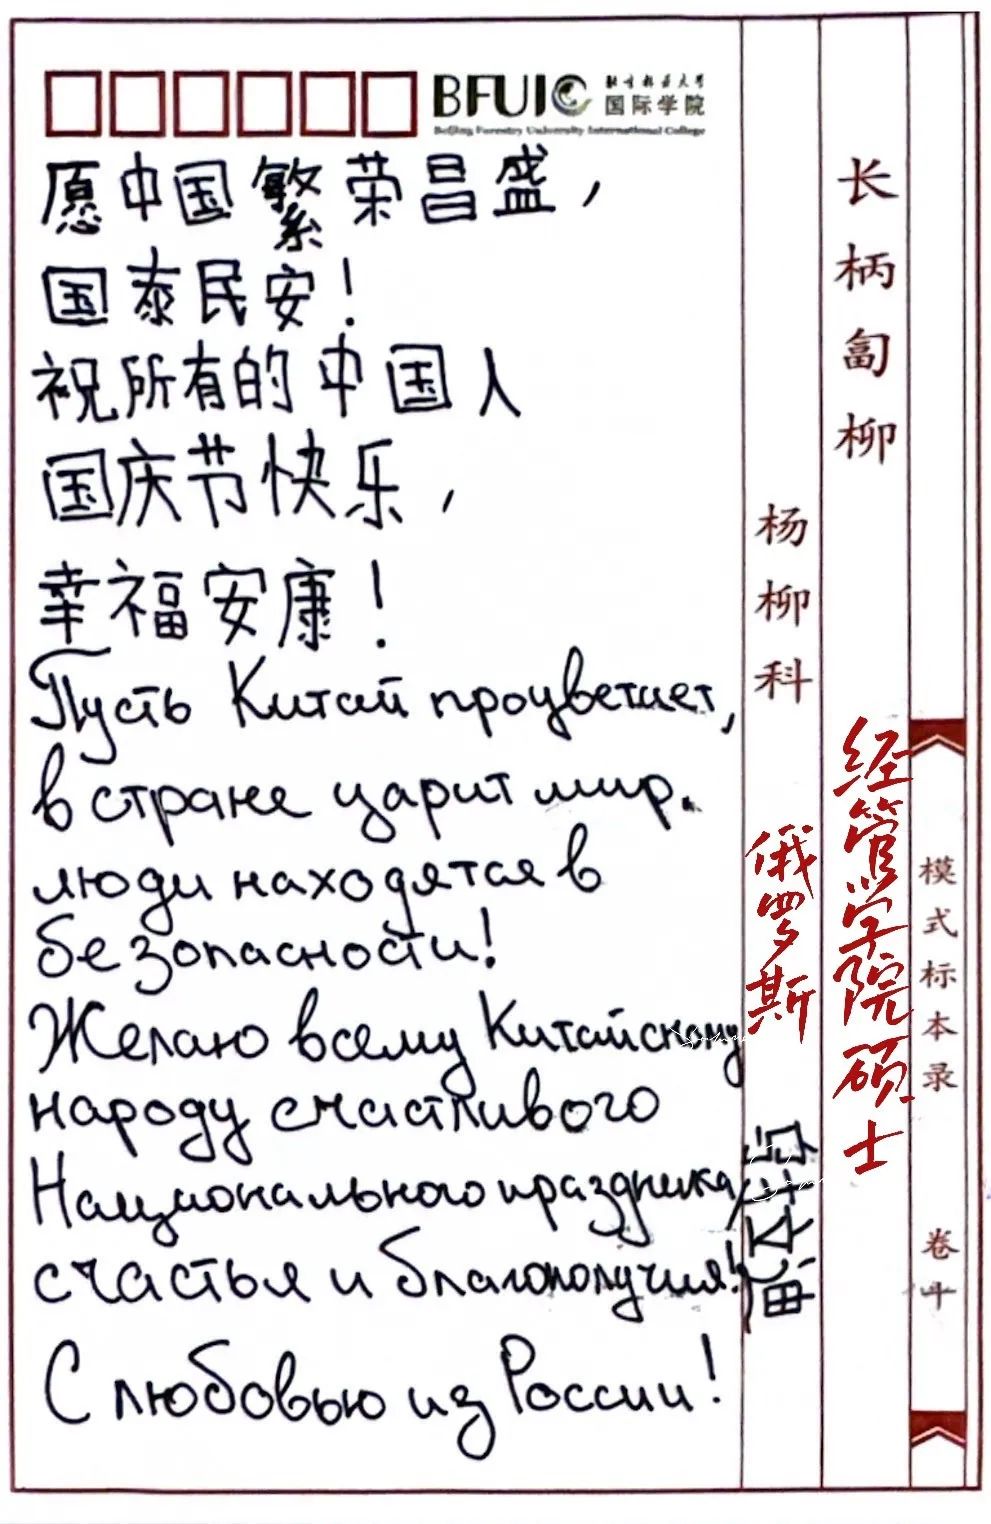 BFUIC
北京林业大学
国际学院
Beijing Forestry University International College
愿中国繁荣昌盛，
国泰民安！
祝所有的中国人
国庆节快乐，
幸福安康！
Пусть Китай процветает,
в стране царит мир.
люди находятся в
безопасности!
Желаю всему Китайскому
народу счастливого
Национального праздника,
счастья и благополучия!
С любовью из России!
杨柳科
俄罗斯
长柄匐柳
经管学院硕士
模式标本录
卷